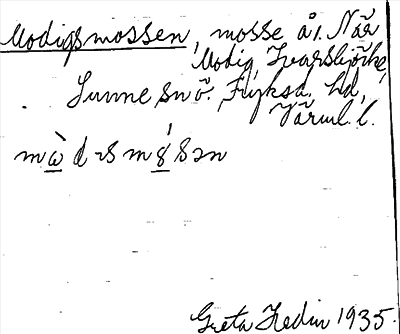 Modigsmossen, mosse å 1. När
Modig, Ivarsbjörke,
Sunne sn ö. Fryksd. hd,
Värml. l.
mὼdɪsmɞ́sən
Greta Hedin 1935.